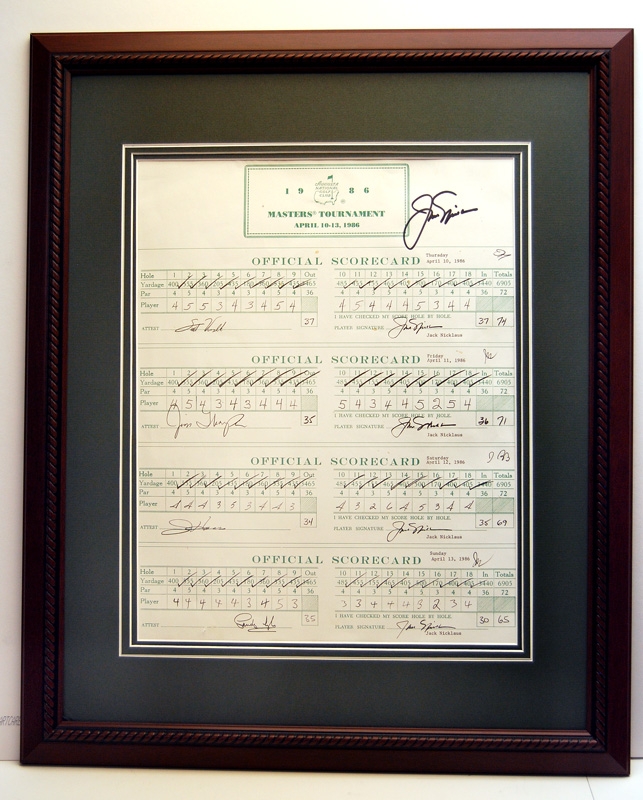 1986
MASTERS® TOURNAMENT
APRIL 10-13, 1986
OFFICIAL SCORECARD Thursday
April 10, 1986
Hole 1 2 3 4 5 6 7 8 9 Out 10 11 12 13 14 15 16 17 18 In Totals
Yardage 400 555 360 205 435 180 360 535 435 3465 485 455 155 465 405 500 170 400 405 3440 6905
Par 4 5 4 3 4 3 4 5 4 36 4 4 3 5 4 5 3 4 4 36 72
Player 4 5 5 3 4 3 4 5 4 37 4 5 4 4 4 5 3 4 4 37 74
I HAVE CHECKED MY SCORE HOLE BY HOLE.
ATTEST PLAYER SIGNATURE
Jack Nicklaus
OFFICIAL SCORECARD Friday
April 11, 1986
Hole 1 2 3 4 5 6 7 8 9 Out 10 11 12 13 14 15 16 17 18 In Totals
Yardage 400 555 360 205 435 180 360 535 435 3465 485 455 155 465 405 500 170 400 405 3440 6905
Par 4 5 4 3 4 3 4 5 4 36 4 4 3 5 4 5 3 4 4 36 72
Player 4 5 4 3 4 3 4 4 4 35 5 4 3 4 4 5 2 5 4 36 71
I HAVE CHECKED MY SCORE HOLE BY HOLE.
ATTEST PLAYER SIGNATURE
Jack Nicklaus
OFFICIAL SCORECARD Saturday
April 12, 1986
Hole 1 2 3 4 5 6 7 8 9 Out 10 11 12 13 14 15 16 17 18 In Totals
Yardage 400 555 360 205 435 180 360 535 435 3465 485 455 155 465 405 500 170 400 405 3440 6905
Par 4 5 4 3 4 3 4 5 4 36 4 4 3 5 4 5 3 4 4 36 72
Player 4 4 4 3 5 3 4 4 3 34 4 3 2 6 4 5 3 4 4 35 69
I HAVE CHECKED MY SCORE HOLE BY HOLE.
ATTEST PLAYER SIGNATURE
Jack Nicklaus
OFFICIAL SCORECARD Sunday
April 13, 1986
Hole 1 2 3 4 5 6 7 8 9 Out 10 11 12 13 14 15 16 17 18 In Totals
Yardage 400 555 360 205 435 180 360 535 435 3465 485 455 155 465 405 500 170 400 405 3440 6905
Par 4 5 4 3 4 3 4 5 4 36 4 4 3 5 4 5 3 4 4 36 72
Player 4 4 4 4 4 3 4 5 3 35 3 3 4 4 4 3 2 3 4 30 65
I HAVE CHECKED MY SCORE HOLE BY HOLE.
ATTEST PLAYER SIGNATURE
Jack Nicklaus